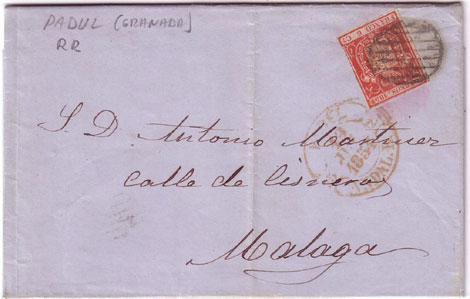 PADUL (GRANADA)
RR
S. D. Antonio Martinez
Calle de Cisneros
Malaga